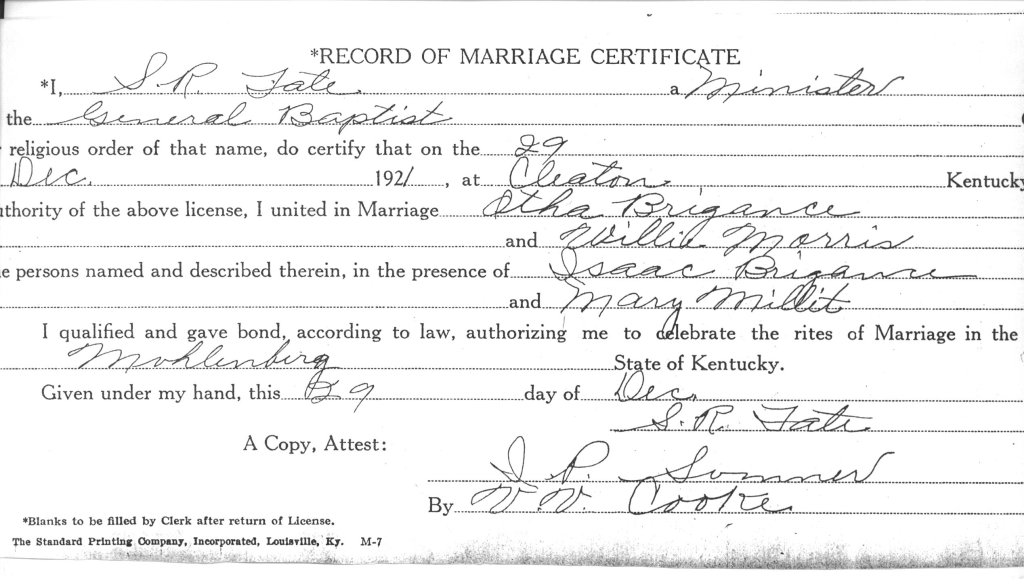 *RECORD OF MARRIAGE CERTIFICATE
*I, S. R. Tate a Minister
the General Baptist
religious order of that name, do certify that on the 29
Dec. 1921, at Cleaton Kentucky
uthority of the above license, I united in Marriage Otha Brigance
and Willie Morris
e persons named and described therein, in the presence of Isaac Brigance
and Mary Millit
I qualified and gave bond, according to law, authorizing me to celebrate the rites of Marriage in the
Mohlenberg State of Kentucky.
Given under my hand, this 29 day of Dec.
S. R. Tate
A Copy, Attest:
J. P. Sumner
By W. W. Cooke
*Blanks to be filled by Clerk after return of License.
The Standard Printing Company, Incorporated, Louisville, Ky. M-7